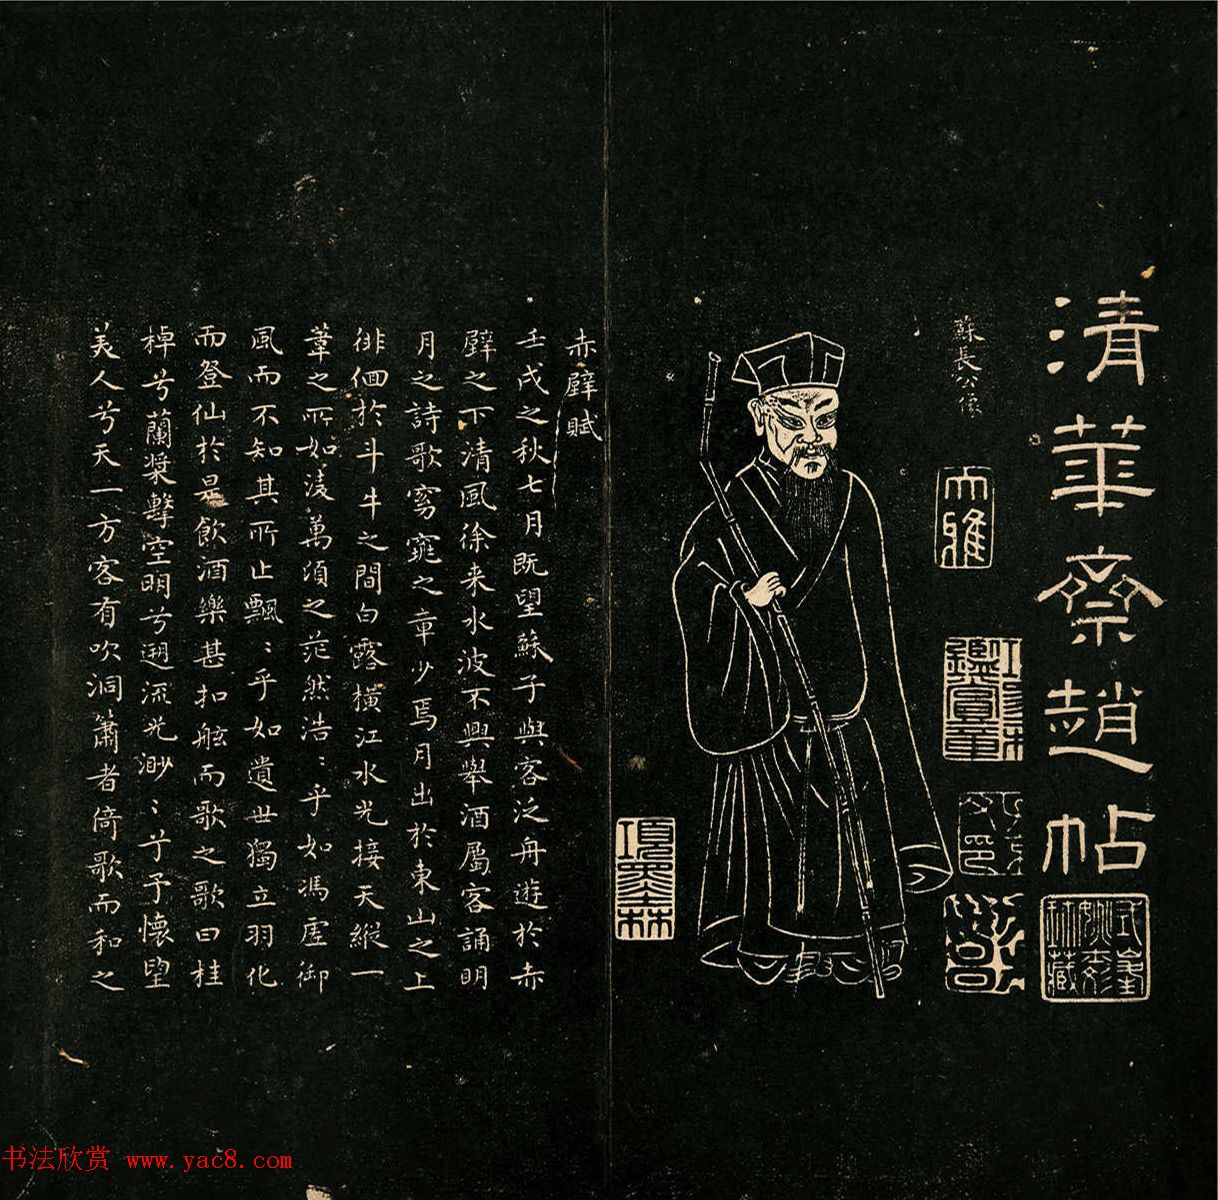 清華齋趙帖
蘇長公像
大雅
鑑賞章
項墨林
赤壁賦
壬戌之秋七月既望蘇子與客泛舟遊於赤
壁之下清風徐来水波不興舉酒屬客誦明
月之詩歌窈窕之章少焉月出於東山之上
徘徊於斗牛之間白露橫江水光接天縱一
葦之所如淩萬頃之茫然浩〻乎如馮虛御
風而不知其所止飄〻乎如遺世獨立羽化
而登仙於是飲酒樂甚扣舷而歌之歌曰桂
棹兮蘭槳擊空明兮遡流光渺〻兮予懷望
美人兮天一方客有吹洞簫者倚歌而和之
书法欣赏 www.yac8.com